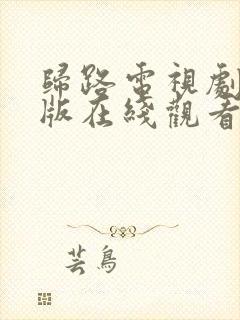 歸路電視劇
版在綫觀看
芸鳥